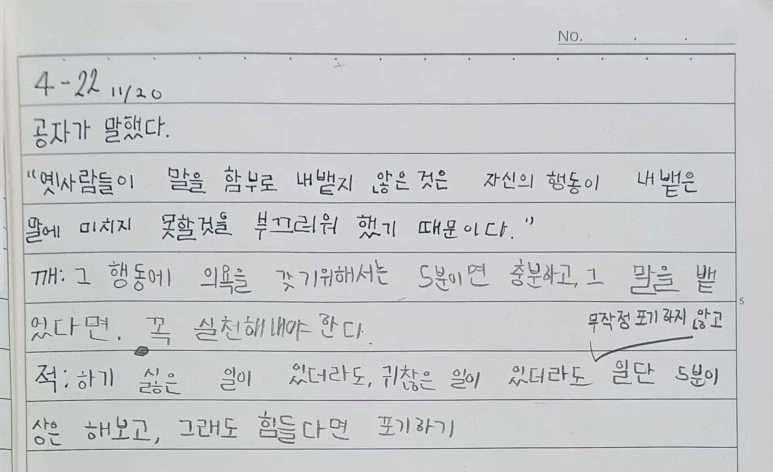 No. . .
4-22 11/20
공자가 말했다.
"옛사람들이 말을 함부로 내뱉지 않은 것은 자신의 행동이 내뱉은
말에 미치지 못할것을 부끄러워 했기 때문이다."
깨: 그 행동에 의욕을 갖기위해서는 5분이면 충분하고, 그 말을 뱉
었다면, 꼭 실천해내야 한다.
무작정 포기하지 않고
적: 하기 싫은 일이 있더라도, 귀찮은 일이 있더라도 일단 5분이
상은 해보고, 그래도 힘들다면 포기하기
5